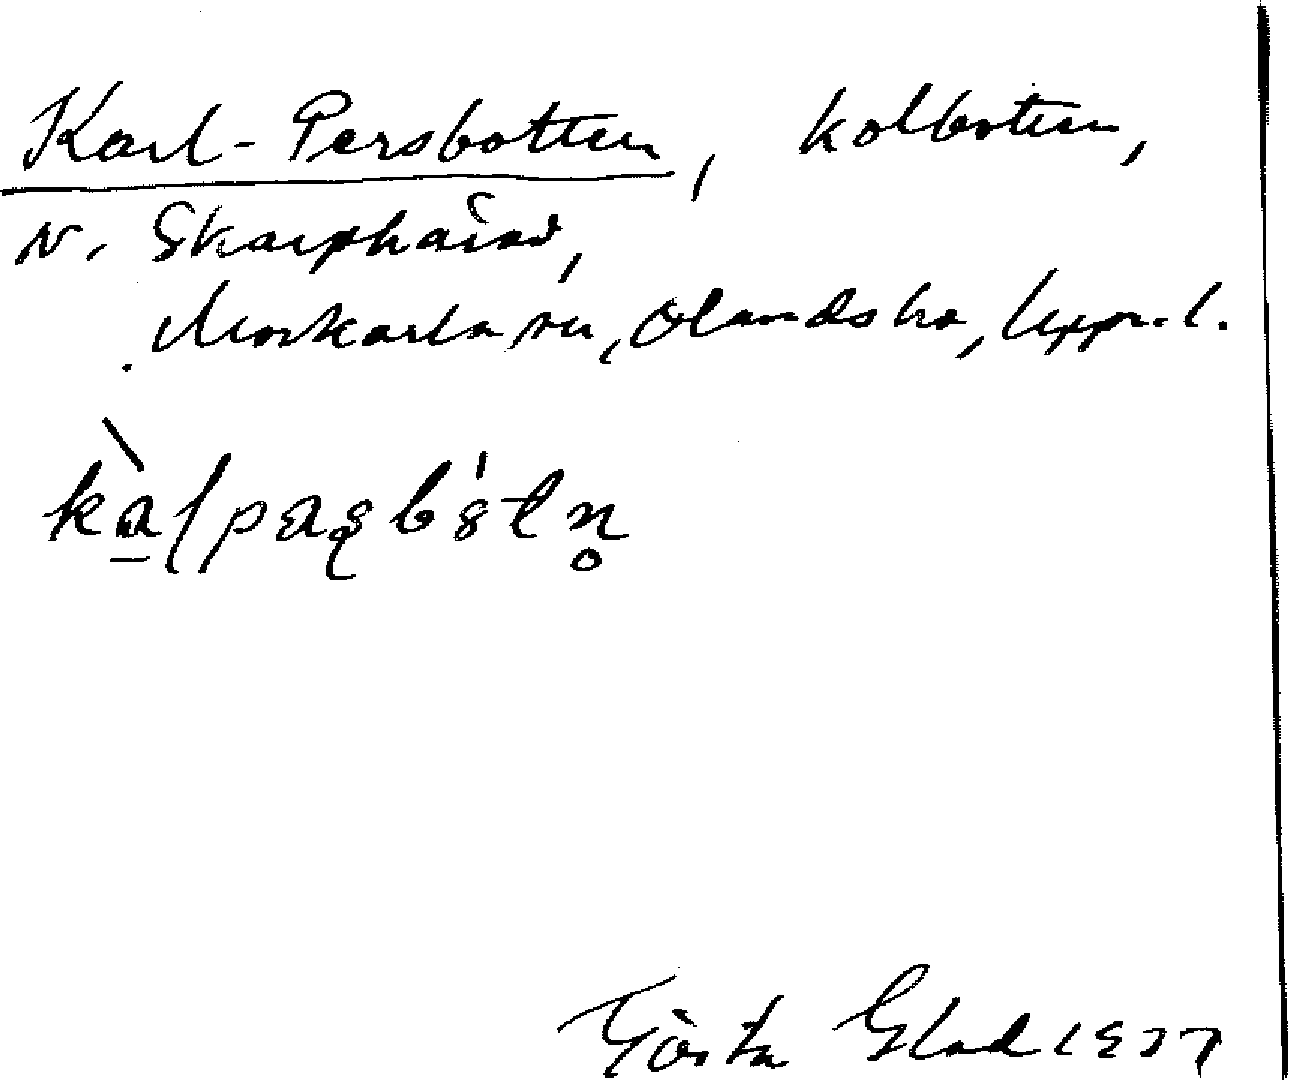 Karl-Persbotten, kolbotten,
N. Skarphålsv,
Morkarla sn, Olands hd, Uppr. l.
Gösta Glad 1937